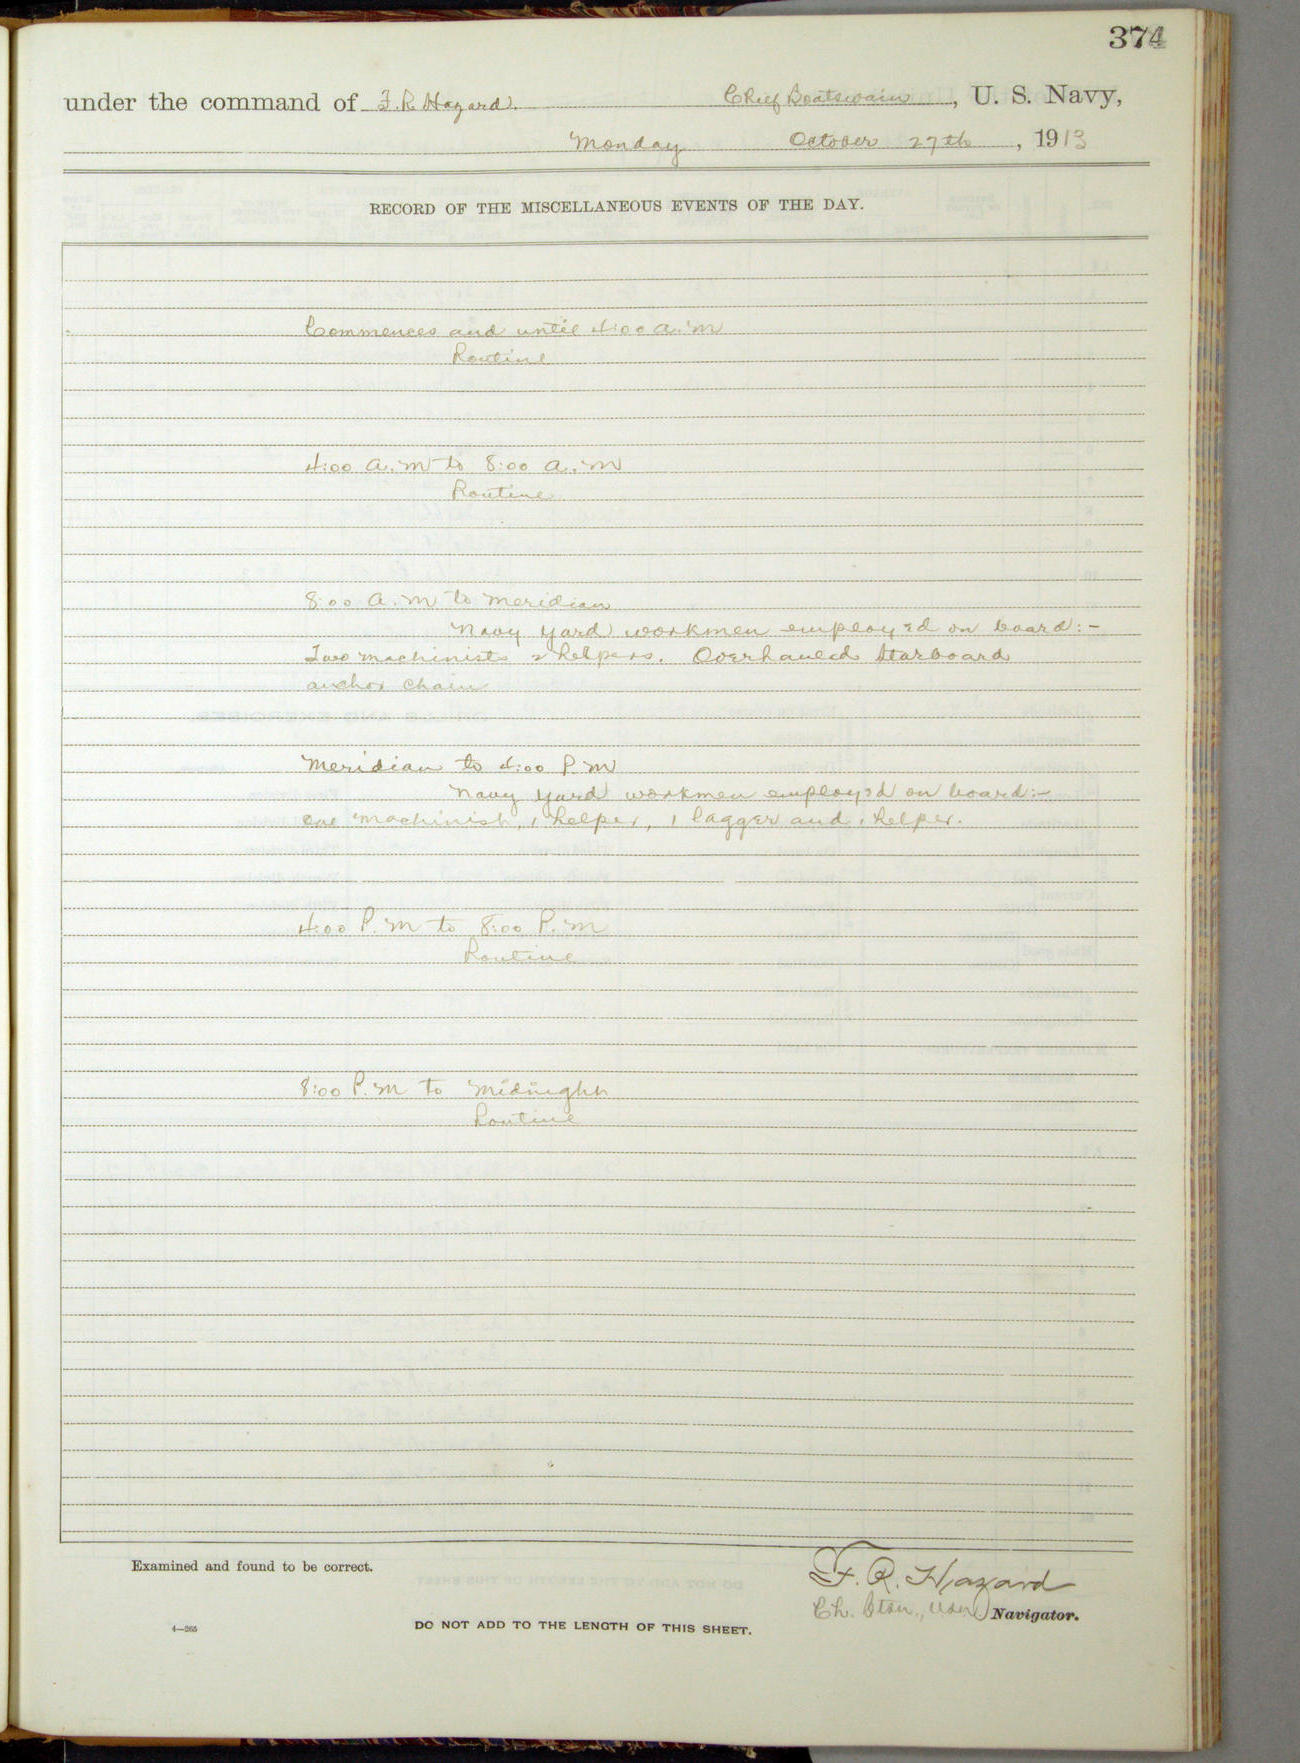 374
under the command of F. R. Hazard. Chief Boatswain, U. S. Navy,
Monday October 27th, 1913
RECORD OF THE MISCELLANEOUS EVENTS OF THE DAY.
Commences and until 4:00 a.m
Routine
4:00 a.m to 8:00 a.m
Routine
8:00 A.M to Meridian
Navy Yard workmen employed on board:-
Two machinists 2 helpers. Overhauled Starboard
anchor chain
Meridian to 4:00 P.M
Navy Yard workmen employed on board:-
one Machinist, 1 helper, 1 lagger and 1 helper.
4:00 P.M to 8:00 P.M
Routine
8:00 P.M to Midnight
Routine
Examined and found to be correct.
F. R. Hazard
Ch. Btsn., USN Navigator.
4—265
DO NOT ADD TO THE LENGTH OF THIS SHEET.